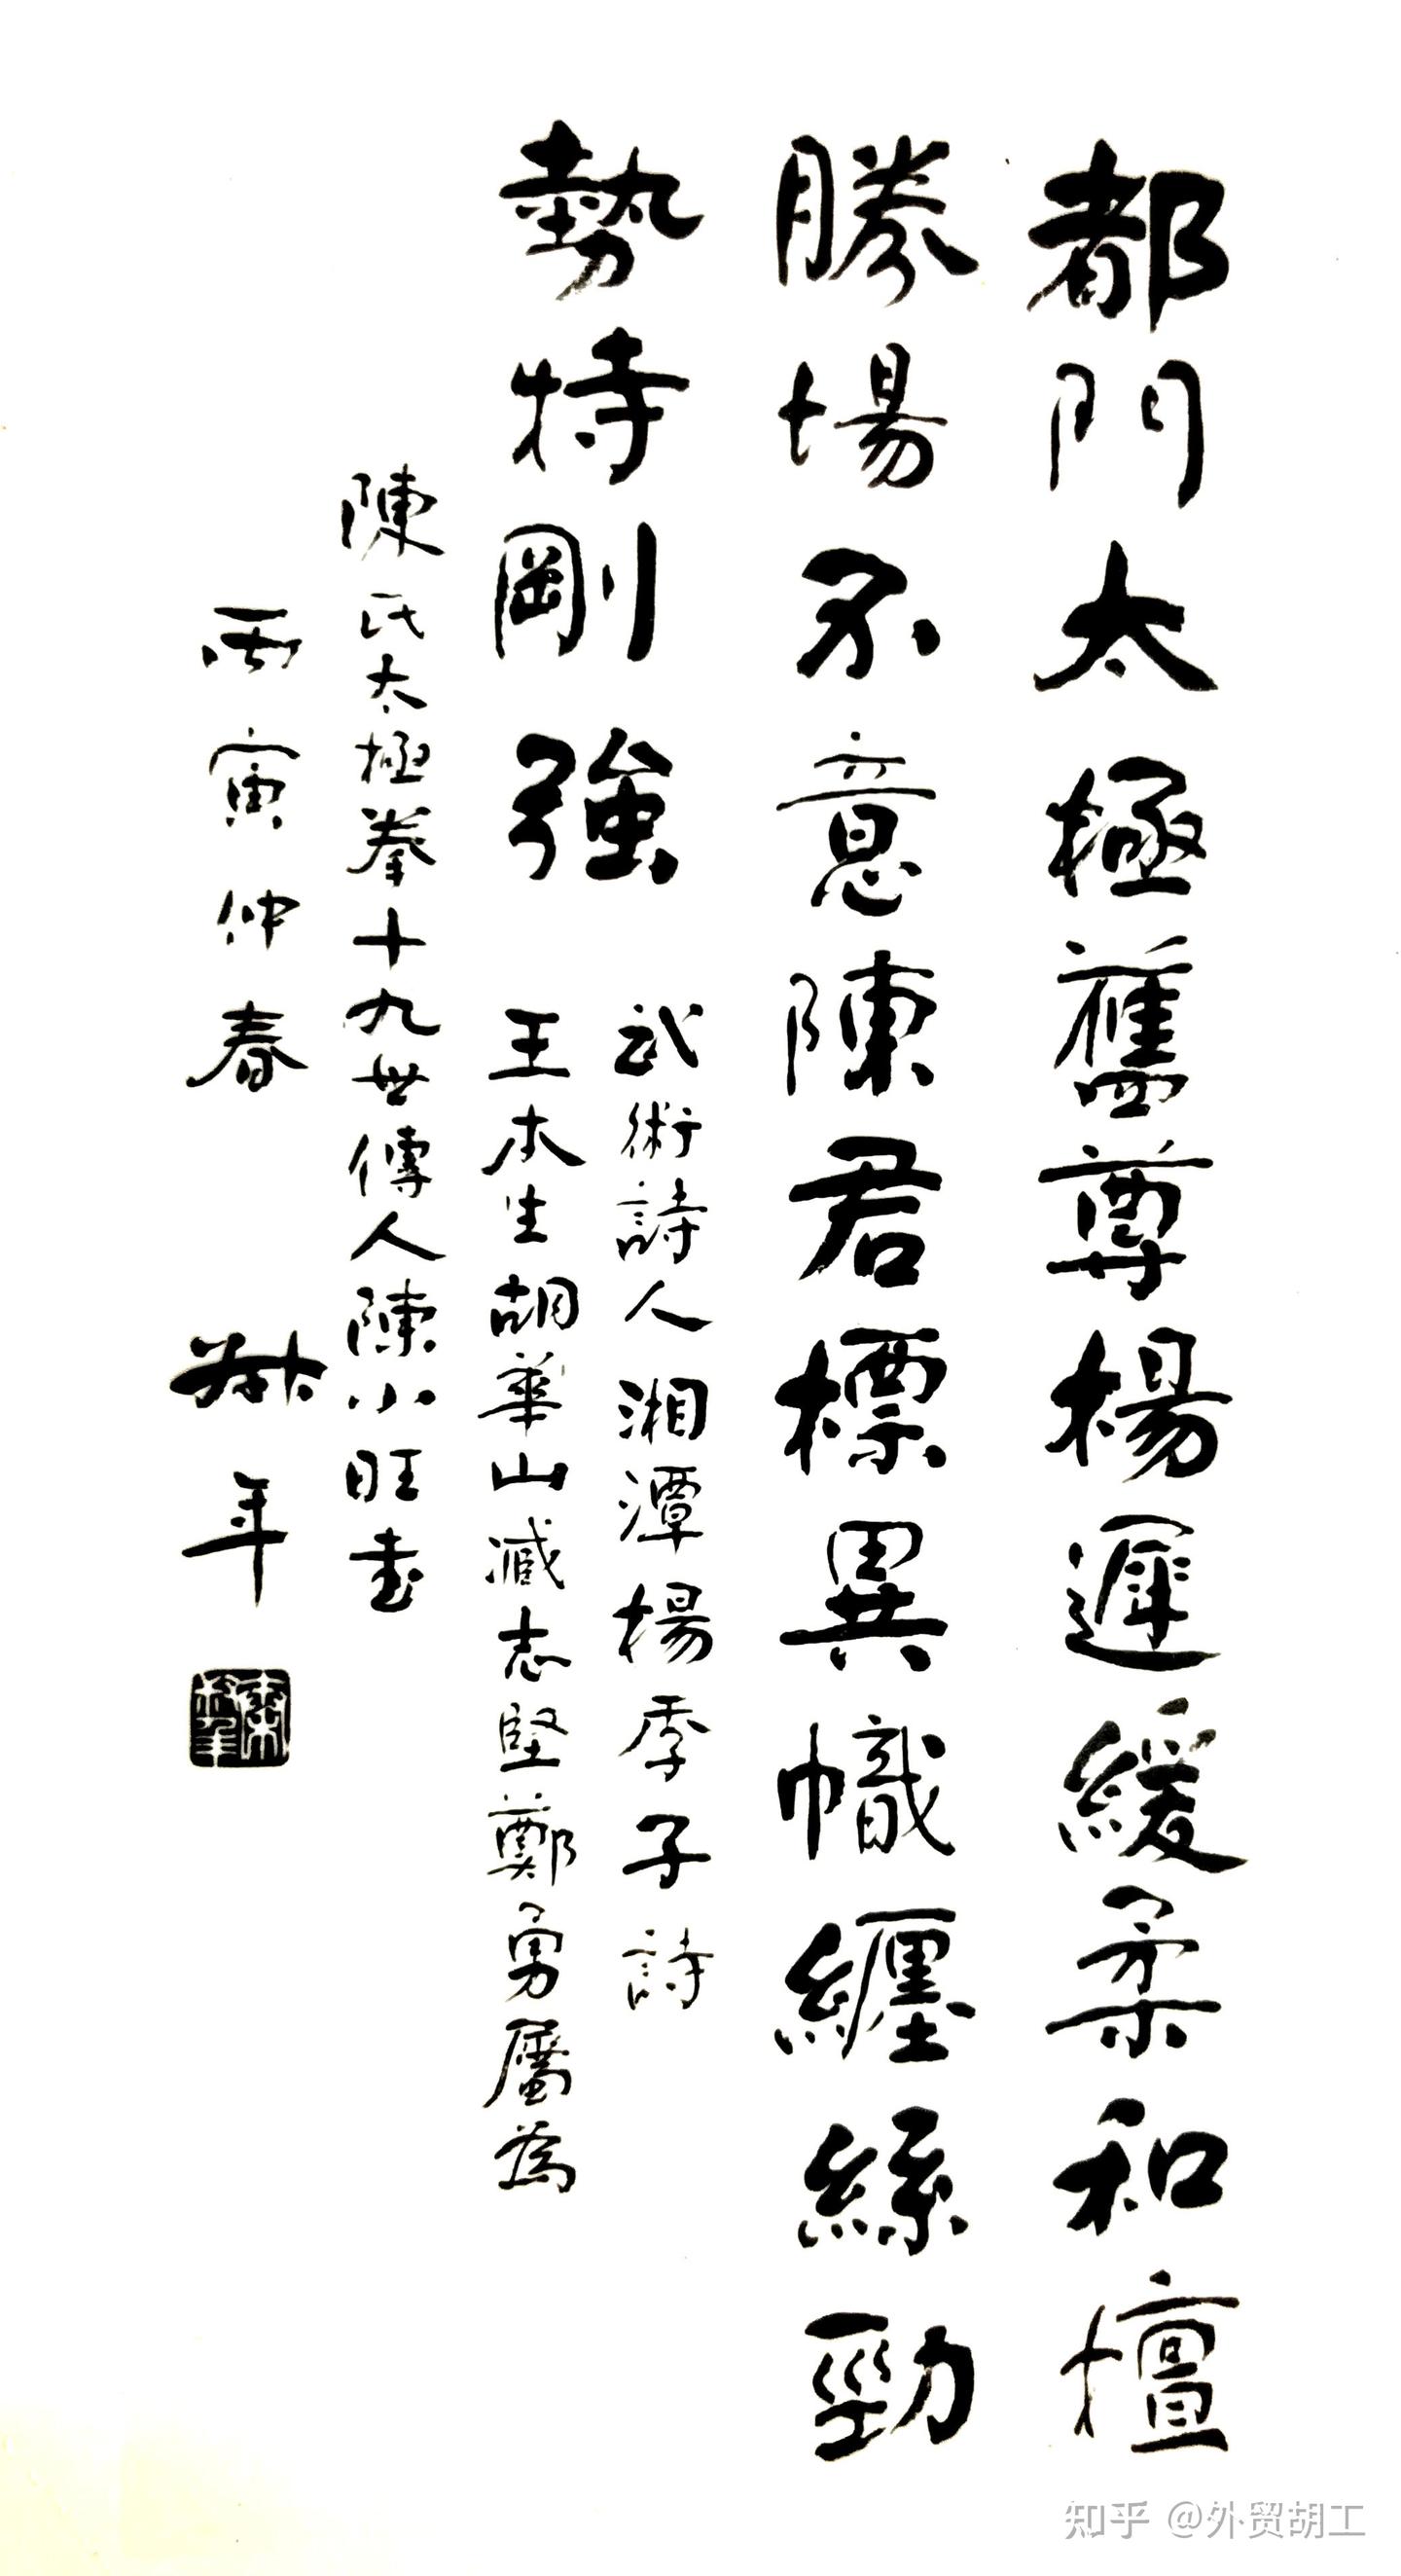 都門太極舊尊楊遲緩柔和檀
勝場不意陳君標異幟纏絲勁
勢特剛強
武術詩人湘潭楊季子詩
王本生胡華山臧志堅鄭勇屬為
陳氏太極拳十九世傳人陳小旺書
丙寅仲春 猷年
知乎 @外贸胡工